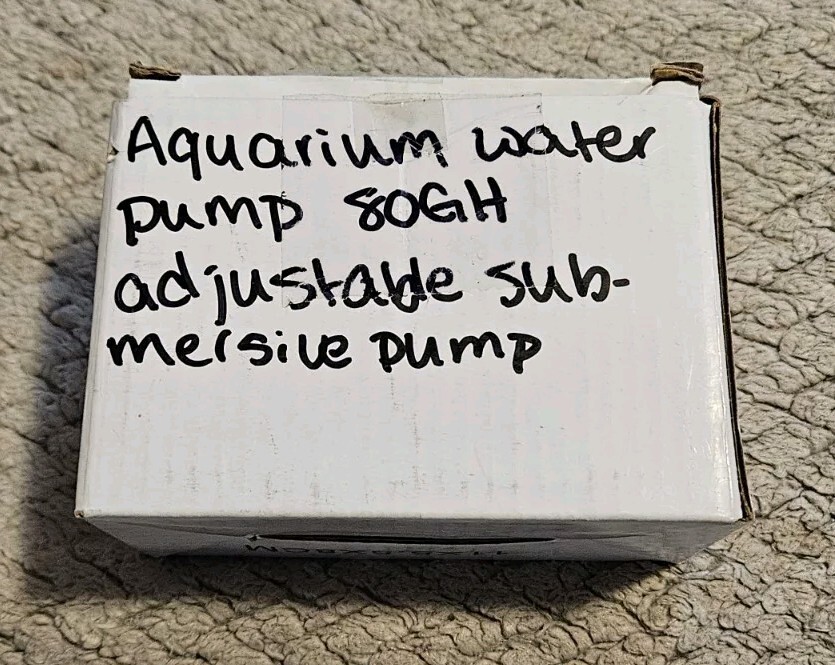 Aquarium water
pump 80GH
adjustable sub-
mersive pump